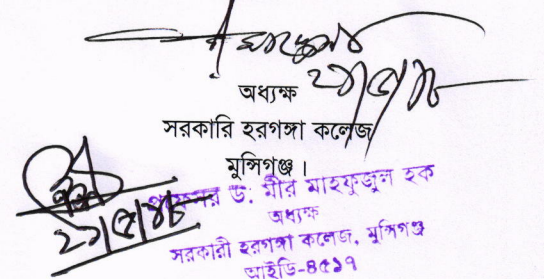 অধ্যক্ষ
সরকারি হরগঙ্গা কলেজ
মুন্সিগঞ্জ।
ড: মীর মাহফুজুল হক
অধ্যক্ষ
সরকারী হরগঙ্গা কলেজ, মুন্সিগঞ্জ
আইডি-৪৫১৭